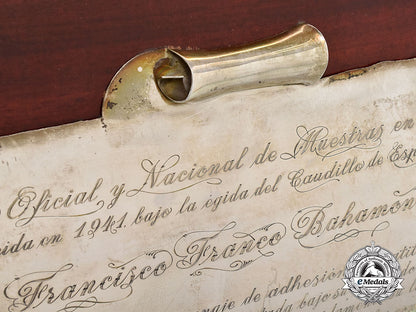 Oficial y Nacional de Muestras en
en 1941, bajo la égida del Caudillo de Esp
Francisco Franco Bahamon
de adhesión
bajo su
eMedals